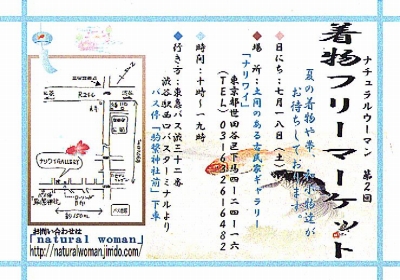 ナチュラルウーマン 第2回
着物フリーマーケット
夏の着物や帯、和小物達が
お待ちしております。
◆日にち:七月一八日(土)
◆場所:土間のある古民家ギャラリー
「ナリワイ」
東京都世田谷区下馬四ー二四ー一六
(TEL)0316326482
◆時間:十時〜一九時
◆行き方:東急バス渋三十二番
渋谷駅西口ターミナルより
バス停「駒繋神社前」下車
R246
渋谷
ナリワイGALLERY
駒繋神社
約150m
お問い合わせは
「natural woman」
http://naturalwoman.jimdo.com/